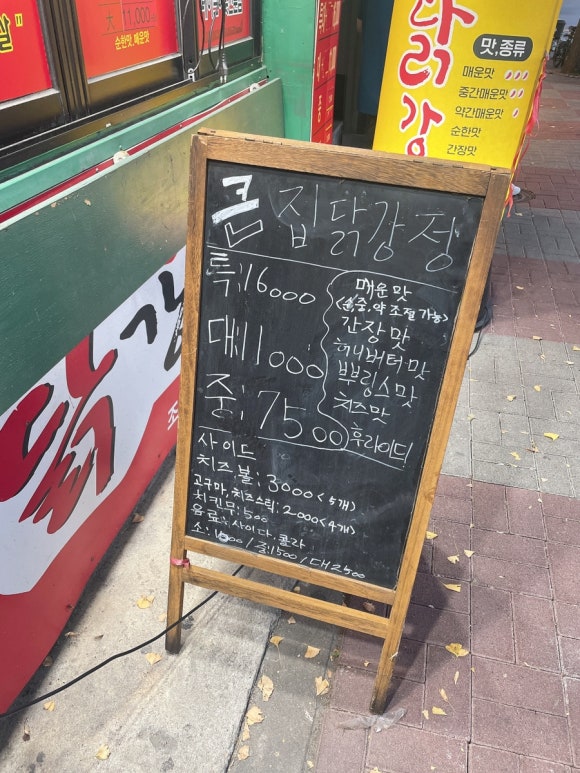 大 11,000
순한맛.매운맛
닭강
맛,종류
매운맛
중간매운맛
약간매운맛
순한맛
간장맛
큰집닭강정
특;16000
대;11000
중;7500
매운맛
<순,중,약 조절가능>
간장맛
허니버터맛
뿌링스맛
치즈맛
후라이드!
사이드
치즈볼: 3000<5개>
고구마,치즈스틱: 2000<4개>
치킨무: 500
음료: 사이다.콜라
소: 1000/중1500/대2500
닭강